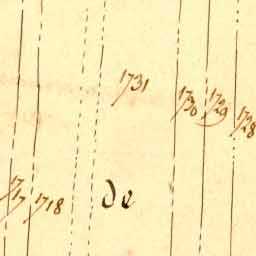 1731
1730
1729
1728
1717
1718
de